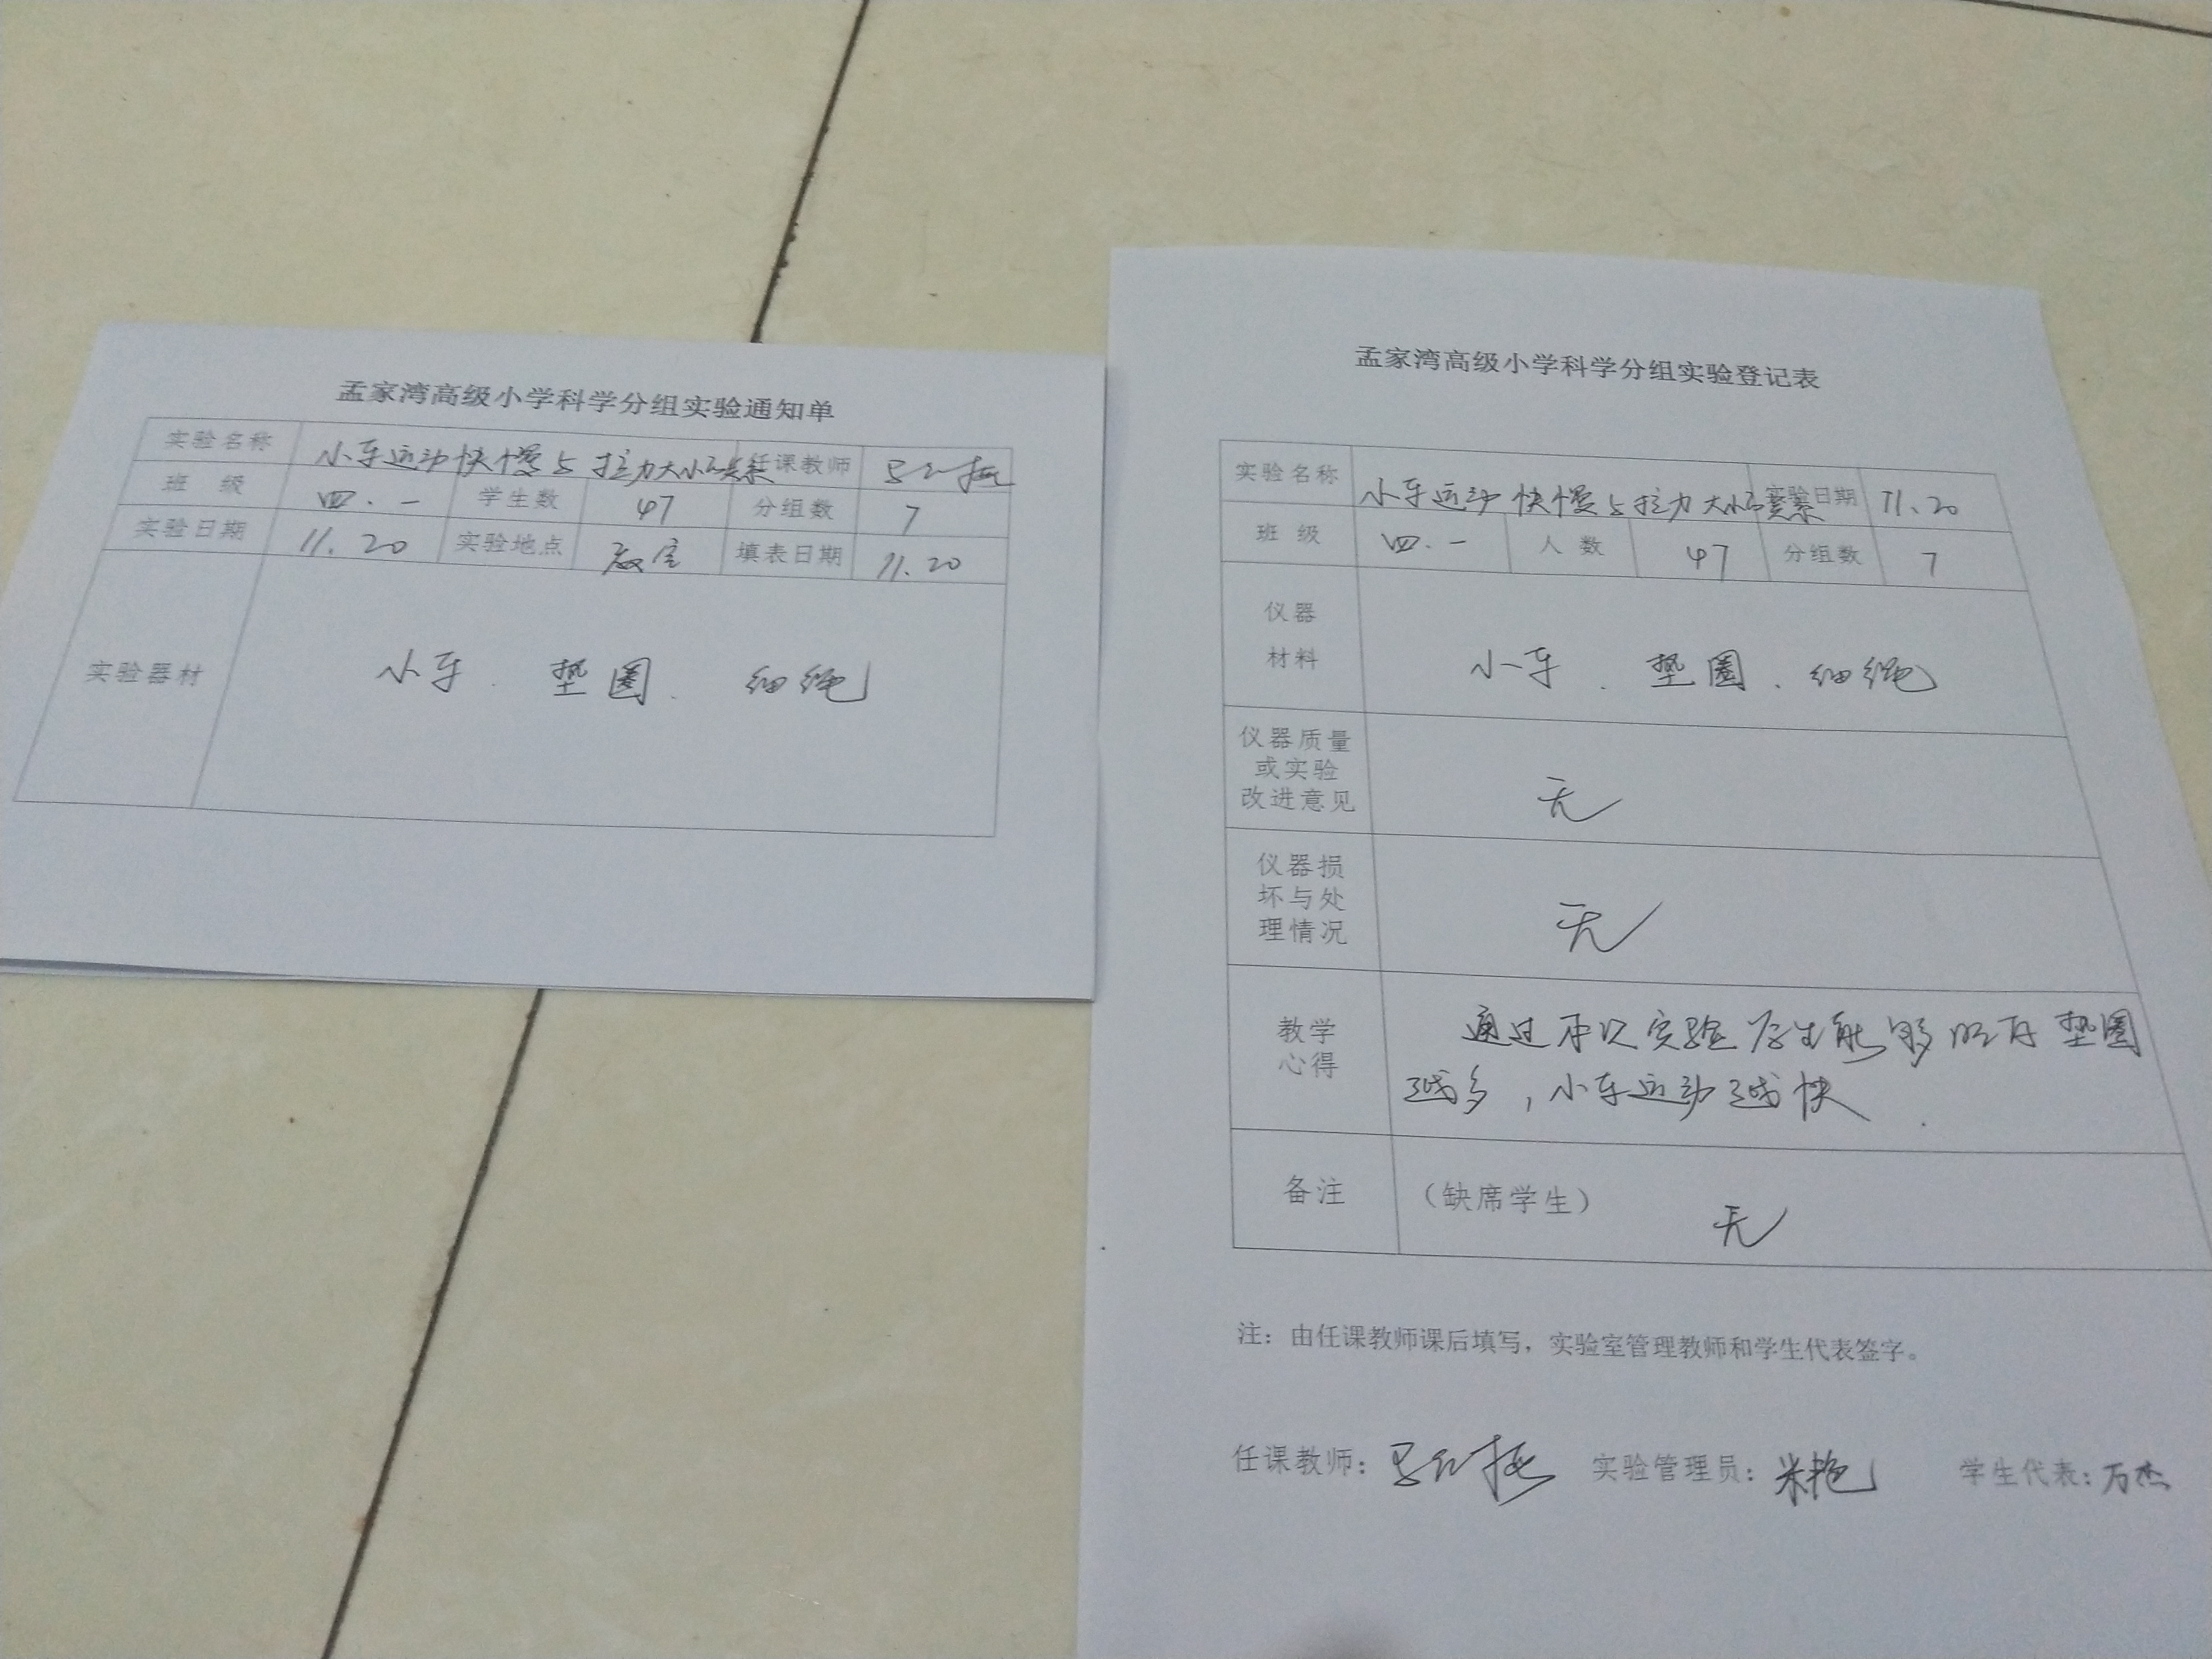 孟家湾高级小学科学分组实验通知单
实验名称 小车运动快慢与拉力大小的关系 任课教师
班 级 四.一 学生数 47 分组数 7
实验日期 11.20 实验地点 教室 填表日期 11.20
实验器材 小车、垫圈、细绳
孟家湾高级小学科学分组实验登记表
实验名称 小车运动快慢与拉力大小的关系 实验日期 11.20
班 级 四.一 人 数 47 分组数 7
仪器
材料 小车、垫圈、细绳
仪器质量
或实验
改进意见 无
仪器损
坏与处
理情况 无
教学
心得 通过本次实验学生能够明白垫圈
越多，小车运动越快.
备注 （缺席学生） 无
注：由任课教师课后填写，实验室管理教师和学生代表签字。
任课教师： 实验管理员：米艳 学生代表：万杰